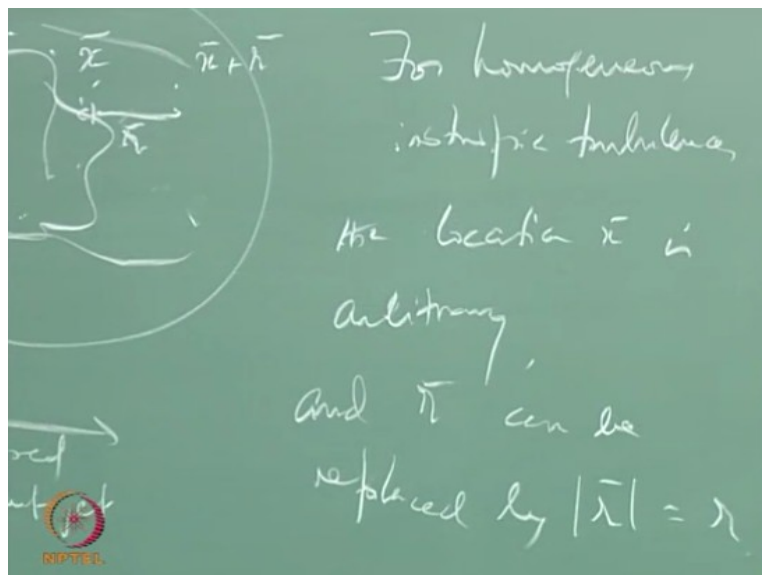 x̄ x̄ + r̄
r̄
For homogeneous
isotropic turbulence
the location x̄ is
arbitrary,
and r̄ can be
replaced by |r̄| = r
jet
NPTEL